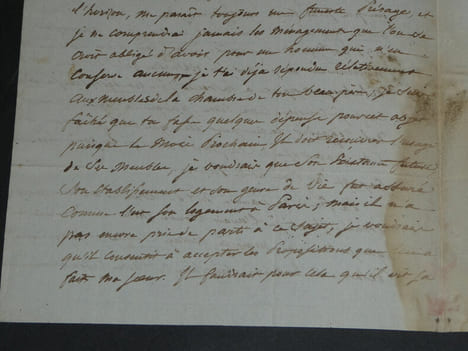 l'horizon, me paraît toujours un funeste présage, et
je ne comprendrai jamais les ménagements que l'on se
croit obligé d'avoir pour un homme qui n'en
conserve aucun je t'ai déjà répondu relativement
aux meubles de la chambre de ton beaupère, je suis
fâché que tu fasse quelque dépense pour cet objet
puisque le mois prochain Il doit recouvrer l'usage
de ses meubles je voudrais que son
son établissement et son genre de vie fut assuré
comme l'est son logement à Paris; mais il n'a
pas encore pris de parti à ce sujet, je voudrais
qu'il consentit à accepter les propositions que
fait ma sœur. Il faudrait pour cela qu'il